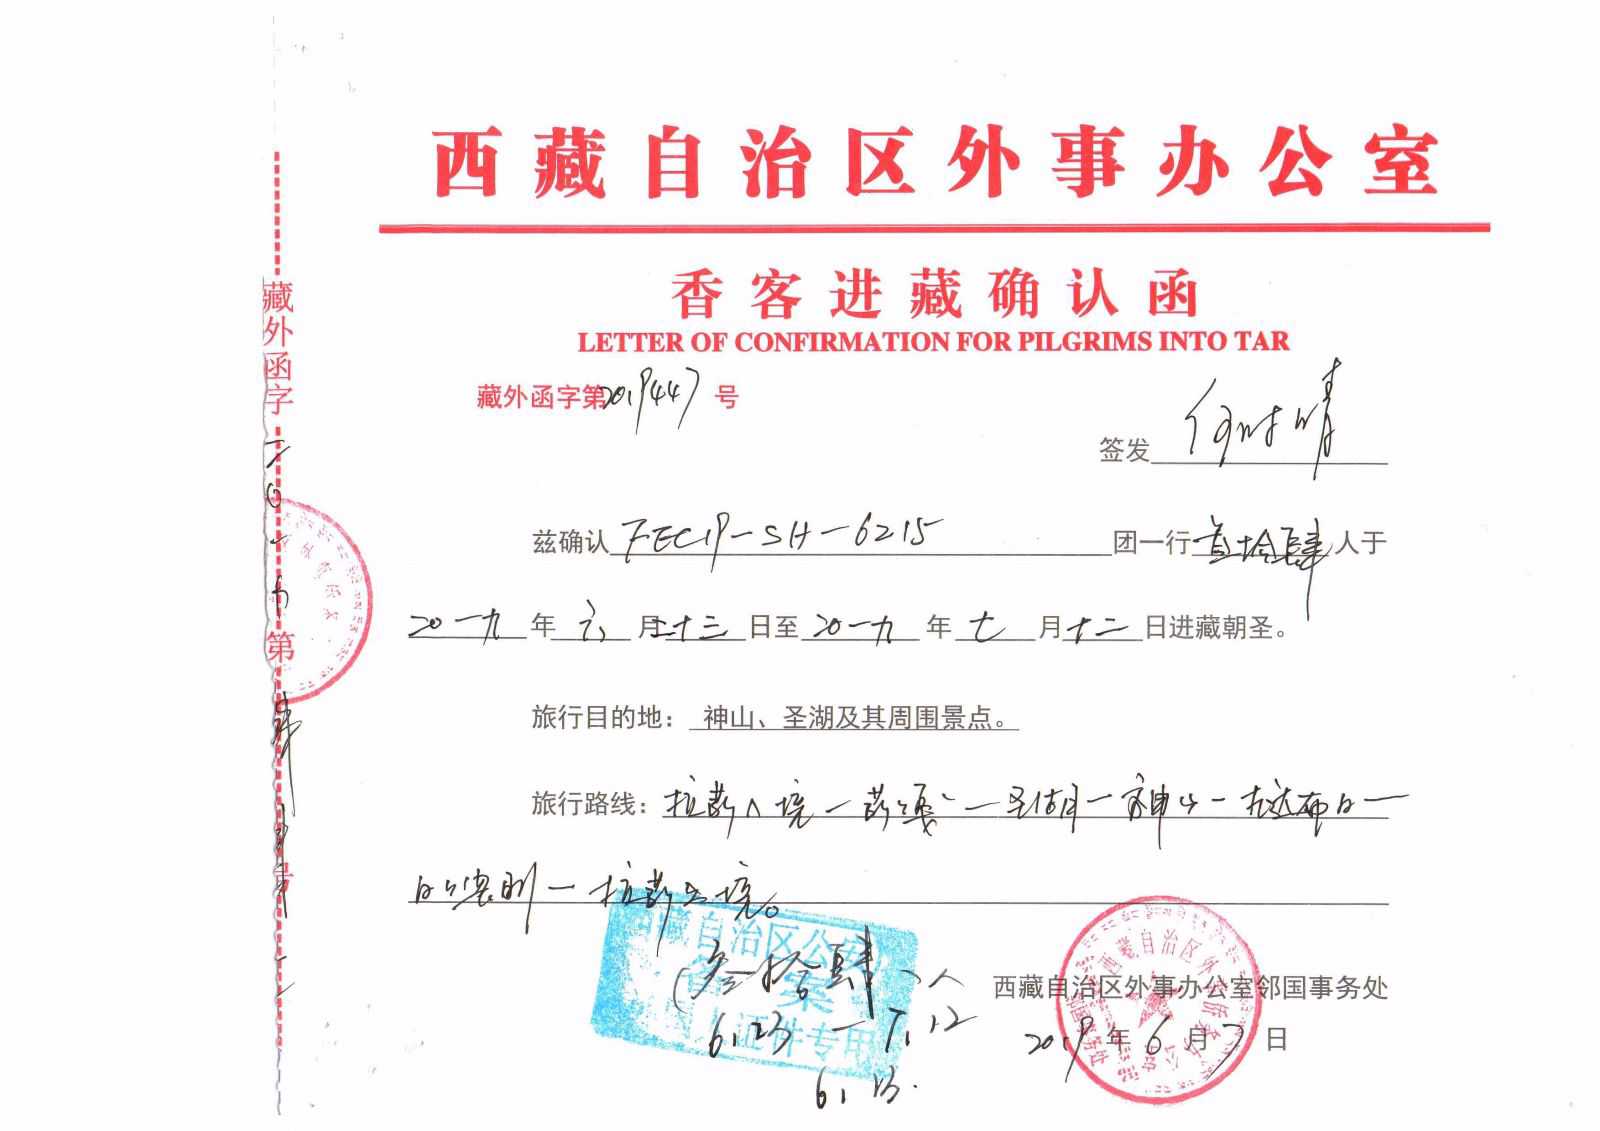 西藏自治区外事办公室
香客进藏确认函
LETTER OF CONFIRMATION FOR PILGRIMS INTO TAR
藏外函字第2019447号
签发
兹确认 FEC19-SH-6215 团一行叁拾肆人于
二0一九年六月二十三日至二0一九年七月十二日进藏朝圣。
旅行目的地：神山、圣湖及其周围景点。
旅行路线：拉萨入境一萨嘎一圣湖一神山一
日喀则一拉萨出境。
西藏自治区公安
备案
证件专用
(叁拾肆人
6.23 — 7.12
6.13.
西藏自治区外事办公室邻国事务处
2019年6月7日
藏外函字
二0一九
第
号